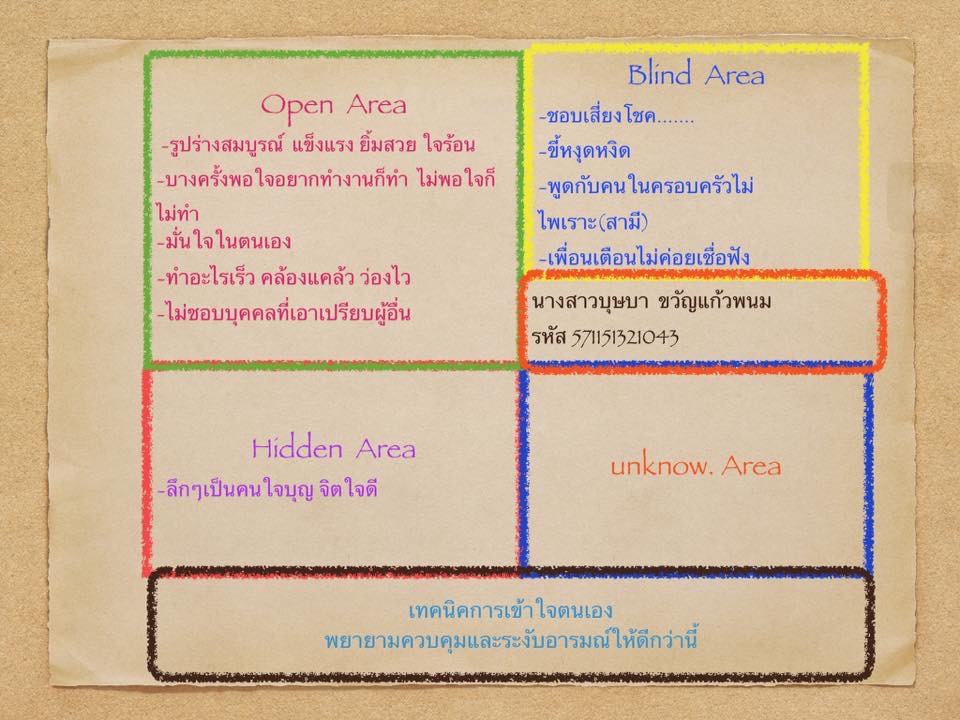 Open Area
-รูปร่างสมบูรณ์ แข็งแรง ยิ้มสวย ใจร้อน
-บางครั้งพอใจอยากทำงานก็ทำ ไม่พอใจก็
ไม่ทำ
-มั่นใจในตนเอง
-ทำอะไรเร็ว คล้องแคล้ว ว่องไว
-ไม่ชอบบุคคลที่เอาเปรียบผู้อื่น
Blind Area
-ชอบเสี่ยงโชค.......
-ขี้หงุดหงิด
-พูดกับคนในครอบครัวไม่
ไพเราะ(สามี)
-เพื่อนเตือนไม่ค่อยเชื่อฟัง
นางสาวบุษบา ขวัญแก้วพนม
รหัส 571151321043
Hidden Area
-ลึกๆเป็นคนใจบุญ จิตใจดี
unknow. Area
เทคนิคการเข้าใจตนเอง
พยายามควบคุมและระงับอารมณ์ให้ดีกว่านี้